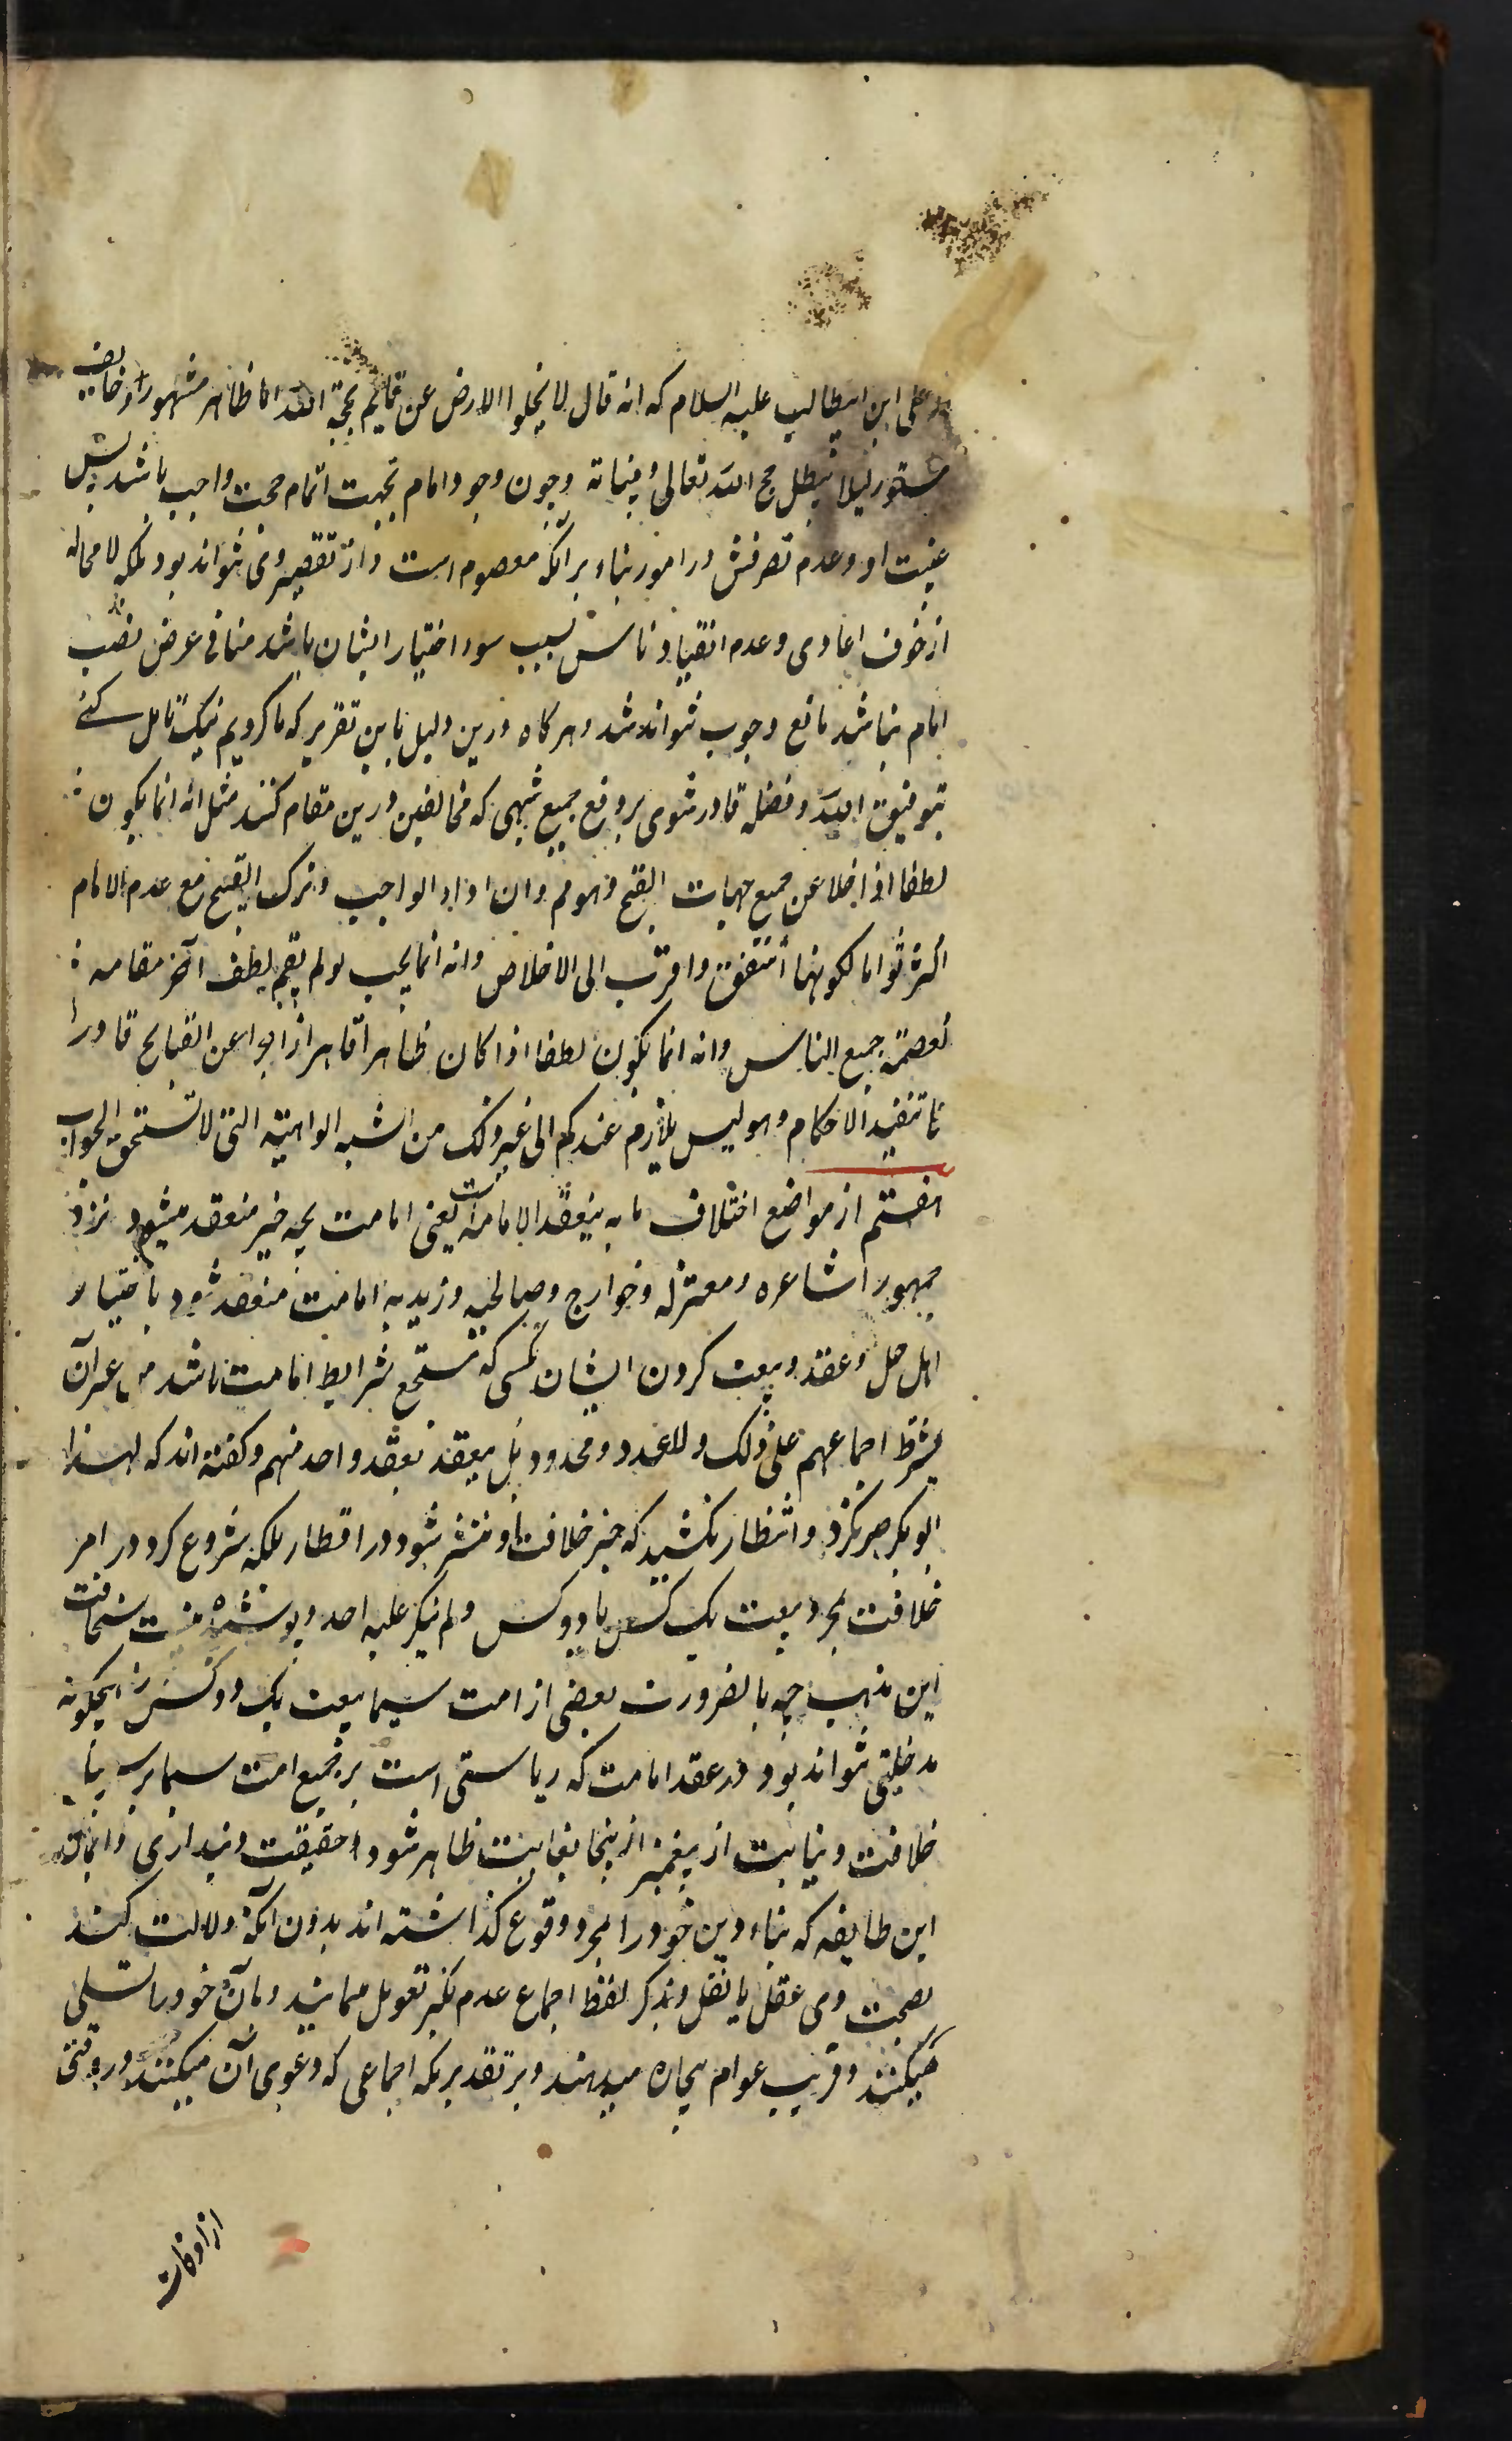 علی ابن ابیطالب علیه السلام که انه قال لا یخلوا الارض عن قایم بحجة الله اما ظاهر مشهور او خایف
مستور لیلا یبطل حجج الله تعالی و بیناته و چون وجود امام بجهت اتمام حجت واجب باشد پس
غیبت او و عدم تصرفش در امور بناء بر آنکه معصوم است و از تقصیر وی نتواند بود بلکه لا محاله
از خوف اعادی و عدم انقیاد ناس بسبب سوء اختیار ایشان باشد منافی غرض نصب
امام نباشد مانع وجوب نتواند شد و هر کاه درین دلیل باین تقریر که ما کردیم نیک تامل کنے
بتوفیق الله و فضله قادر شوی بر دفع جمیع شبهی که مخالفین درین مقام کنند مثل انه انما یکون
لطفا اذا خلا عن جمیع جهات القبح و هو مم وان اداء الواجب و ترک القبیح مع عدم الامام
اکثر ثوابا لکونهما اشق و اقرب الی الاخلاص وانه انما یجب لو لم یقم لطف آخر مقامه
کعصمة جمیع الناس وانه انما یکون لطفا اذا کان ظاهرا قاهرا زاجرا عن القبایح قادرا
علی تنفیذ الاحکام و هو لیس بلازم عندکم الی غیر ذلک من الشبه الواهیة التی لا تستحق الجواب
هفتم از مواضع اختلاف ما به ینعقد الامامة است یعنی امامت بچه چیز منعقد میشود نزد
جمهور اشاعره و معتزله و خوارج و صالحیه و زیدیه امامت منعقد شود باختیار
اهل حل و عقد و بیعت کردن ایشان بکسی که مستجمع شرایط امامت باشد من غیر ان
یشترط اجماعهم علی ذلک و لا عدد محدود بل ینعقد بعقد واحد منهم و کفته اند که لهذا
ابو بکر صبر نکرد و انتظار نکشید که خبر خلافت او منتشر شود در اقطار بلکه شروع کرد در امر
خلافت بمجرد بیعت یک کس یا دو کس و لم ینکر علیه احد و پوشیده نیست سخافت
این مذهب چه بالضرورت بعضی از امت سیما بیعت یک دو کس را هیچکونه
مدخلیتی نتواند بود در عقد امامت که ریاستی است بر جمیع امت سیما بر سبیل
خلافت و نیابت از پیغمبر از ینجا بغایت ظاهر شود حقیقت دینداری و
این طایفه که بناء دین خود را بمجرد وقوع کذاشته اند بدون آنکه دلالت کند
بصحت وی عقل یا نقل و بذکر لفظ اجماع عدم نکیر تعویل مینمایند و بآن خود را تسلی
میکنند و فریب عوام بیچاره میدهند و بر تقدیریکه اجماعی که دعوی آن میکنند در وقتی
از اوقات